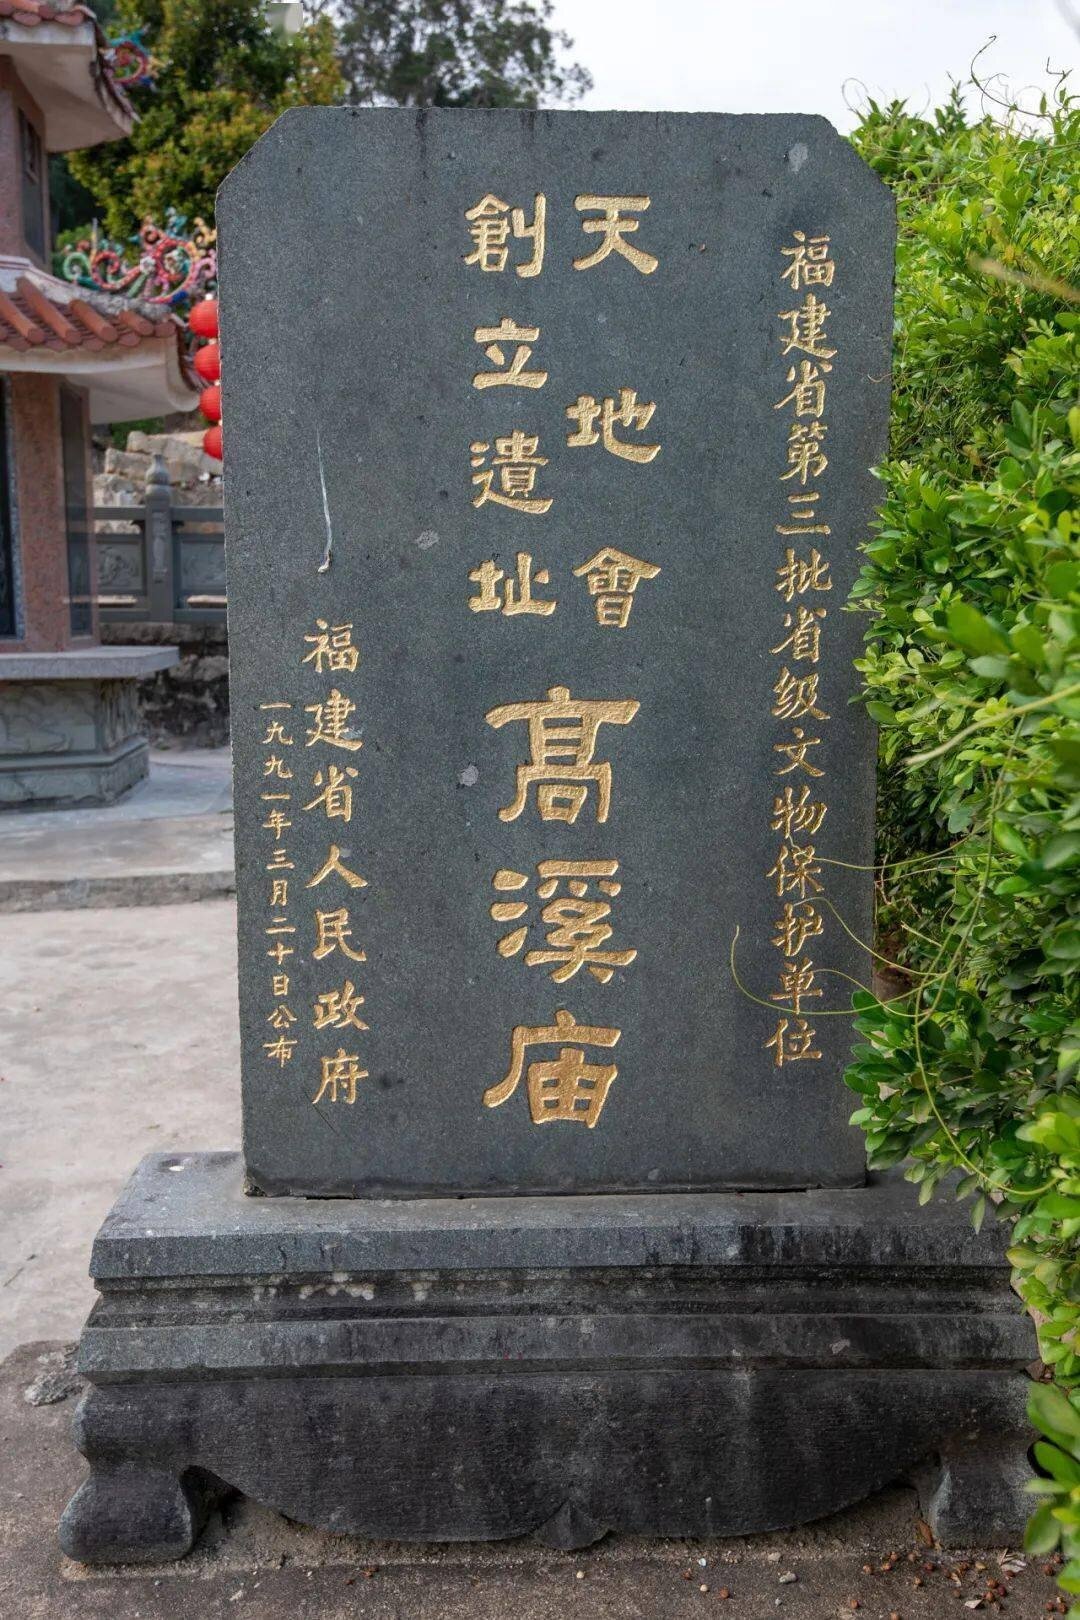 福建省第三批省级文物保护单位
天地會
創立遺址
高溪庙
福建省人民政府
一九九一年三月二十日公布